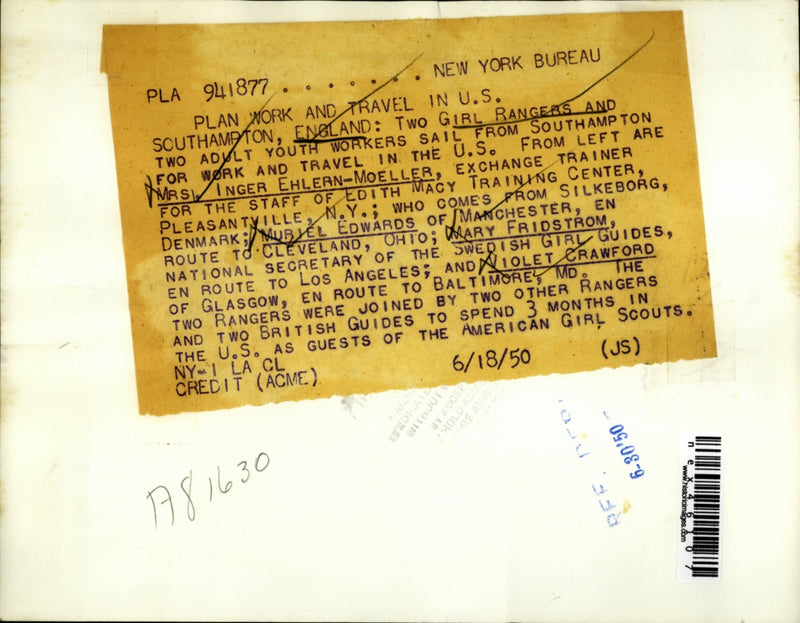 PLA 941877 . . . . . . . NEW YORK BUREAU
PLAN WORK AND TRAVEL IN U.S.
SOUTHAMPTON, ENGLAND: TWO GIRL RANGERS AND
TWO ADULT YOUTH WORKERS SAIL FROM SOUTHAMPTON
FOR WORK AND TRAVEL IN THE U.S. FROM LEFT ARE
MRS. INGER EHLERN-MOELLER, EXCHANGE TRAINER
FOR THE STAFF OF EDITH MACY TRAINING CENTER,
PLEASANTVILLE, N.Y.; WHO COMES FROM SILKEBORG,
DENMARK; MURIEL EDWARDS OF MANCHESTER, EN
ROUTE TO CLEVELAND, OHIO; MARY FRIDSTROM,
NATIONAL SECRETARY OF THE SWEDISH GIRL GUIDES,
EN ROUTE TO LOS ANGELES; AND VIOLET CRAWFORD
OF GLASGOW, EN ROUTE TO BALTIMORE, MD. THE
TWO RANGERS WERE JOINED BY TWO OTHER RANGERS
AND TWO BRITISH GUIDES TO SPEND 3 MONTHS IN
THE U.S. AS GUESTS OF THE AMERICAN GIRL SCOUTS.
NY-1 LA CL
CREDIT (ACME) 6/18/50 (JS)
WITHOUT
A81630
REF. DEPT
6-30'50
www.historicimages.com
nex46107